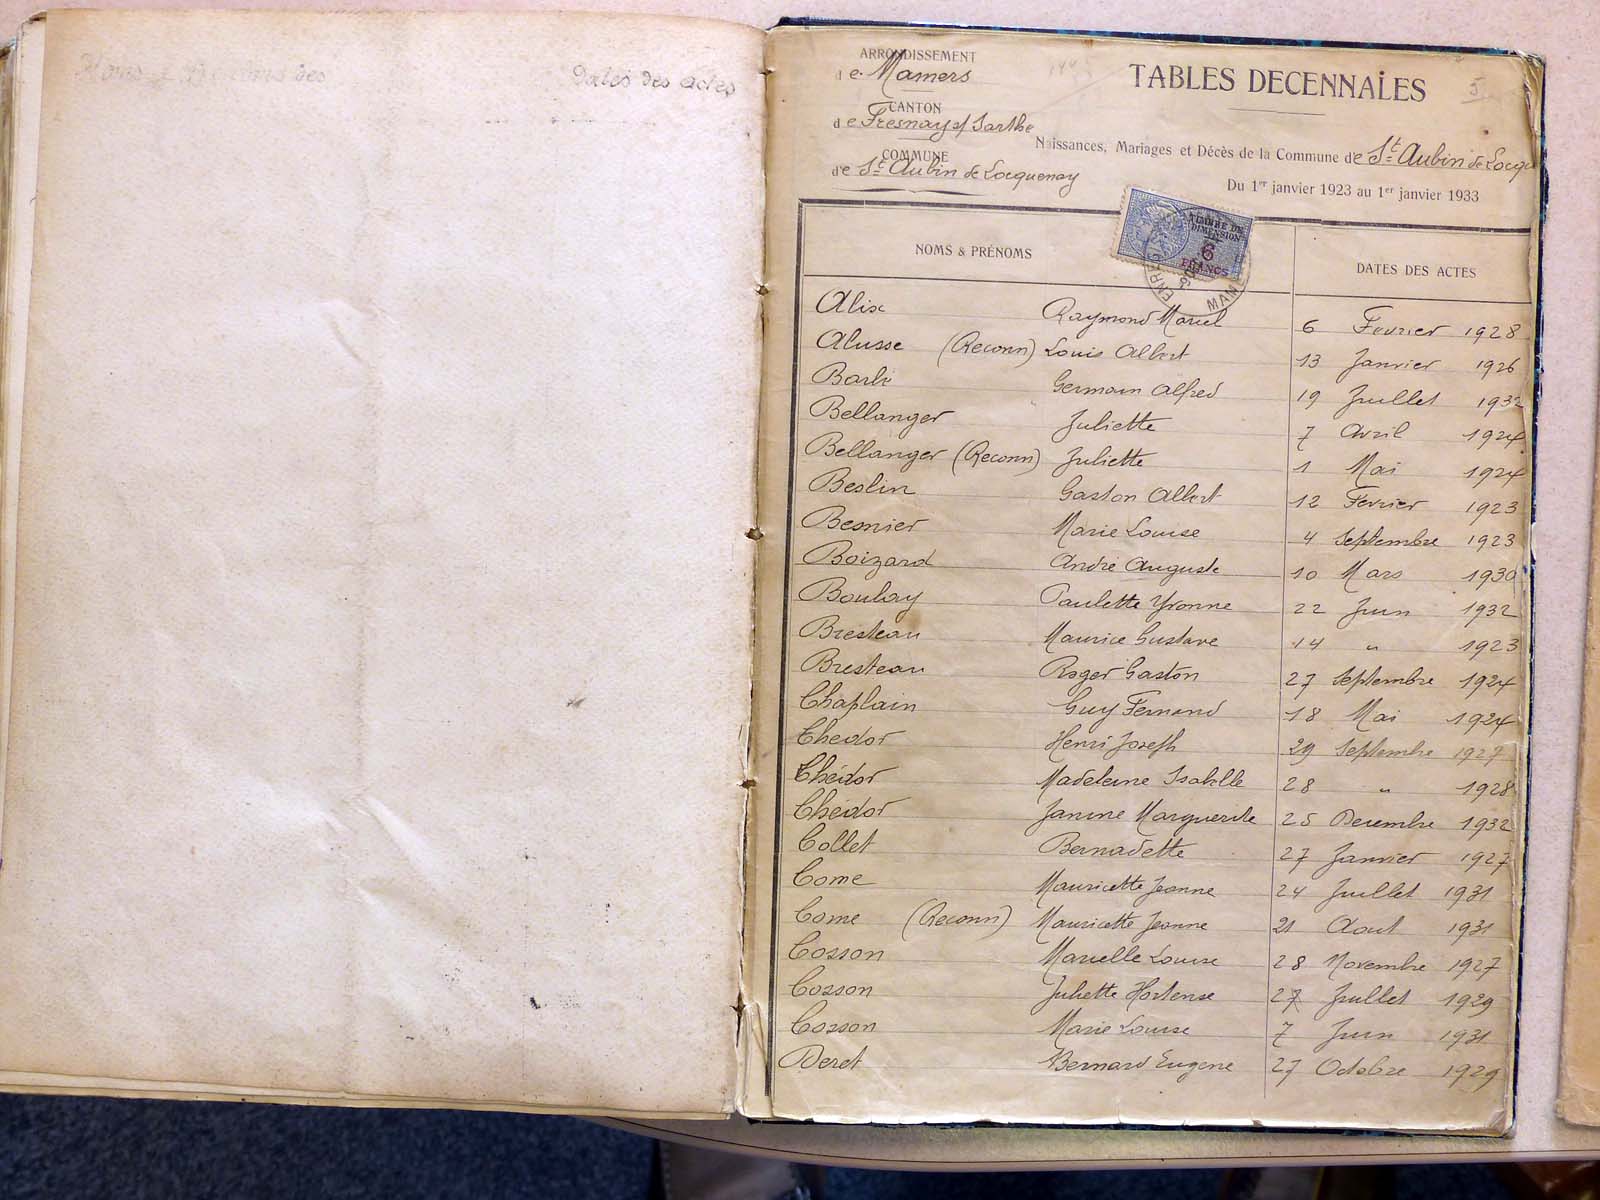 Noms et Prénoms des
Dates des actes
ARRONDISSEMENT
de Mamers
CANTON
de Fresnay s/ Sarthe
COMMUNE
de St Aubin de Locquenay
TABLES DECENNALES
5
Naissances, Mariages et Décès de la Commune de St Aubin de Locque
Du 1er janvier 1923 au 1er janvier 1933
DIMENSION
6
FRANCS
NOMS & PRÉNOMS DATES DES ACTES
Alix Raymond Marcel 6 Fevrier 1928
Alusse (Reconn) Louis Albert 13 Janvier 1926
Barbé Germain Alfred 19 Juillet 1932
Bellanger Juliette 7 Avril 1924
Bellanger (Reconn) Juliette 1 Mai 1924
Beslin Gaston Albert 12 Fevrier 1923
Besnier Marie Louise 4 Septembre 1923
Boizard André Auguste 10 Mars 1930
Boulay Paulette Yvonne 22 Juin 1932
Bresteau Maurice Gustave 14 " 1923
Bresteau Roger Gaston 27 Septembre 1924
Chaplain Guy Fernand 18 Mai 1924
Chedor Henri Joseph 29 Septembre 1927
Chédor Madeleine Isabelle 28 " 1928
Chédor Janine Marguerite 25 Decembre 1932
Collet Bernadette 27 Janvier 1927
Come Mauricette Jeanne 24 Juillet 1931
Come (Reconn) Mauricette Jeanne 21 Aout 1931
Cosson Marcelle Louise 28 Novembre 1927
Cosson Juliette Hortense 27 Juillet 1929
Cosson Marie Louise 7 Juin 1931
Deret Bernard Eugene 27 Octobre 1929